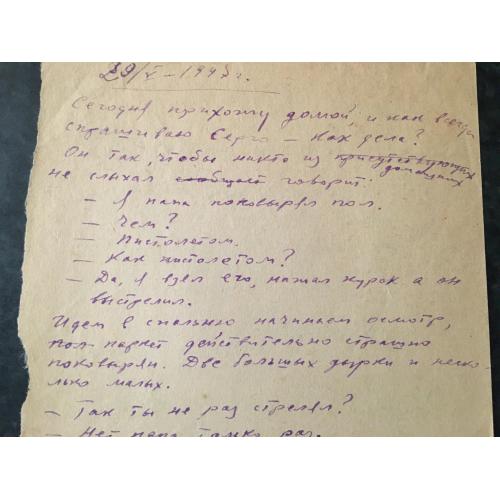 29/V – 1947 г.
Сегодня прихожу домой, и как всегда
спрашиваю Серго – Как дела?
Он так, чтобы никто из присутствующих домашних
не слыхал сообщает говорит:
– Я папа поковырял пол.
– Чем?
– Пистолетом.
– Как пистолетом?
– Да, я взял его, нажал курок а он
выстрелил.
Идем в спальню начинаем осмотр,
пол паркет действительно страшно
поковырян. Две больших дырки и неско-
лько малых.
– Так ты не раз стрелял?
– Нет папа только раз.